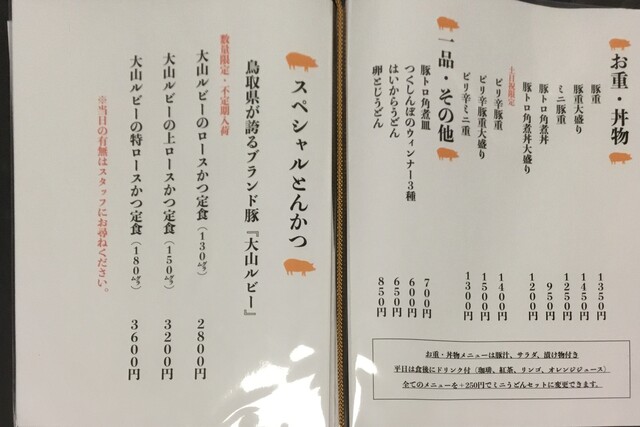 お重・丼物
豚重 1350円
豚重大盛り 1450円
ミニ豚重 1250円
豚トロ角煮丼 950円
豚トロ角煮丼大盛り 1200円
土日祝限定
ピリ辛豚重 1400円
ピリ辛豚重大盛り 1500円
ピリ辛ミニ重 1300円
一品・その他
豚トロ角煮皿 700円
つくしんぼのウィンナー3種 600円
はいからうどん 650円
卵とじうどん 850円
お重・丼物メニューは豚汁、サラダ、漬け物付き
平日は食後にドリンク付（珈琲、紅茶、リンゴ、オレンジジュース）
全てのメニューを+250円でミニうどんセットに変更できます。
スペシャルとんかつ
鳥取県が誇るブランド豚『大山ルビー』
数量限定・不定期入荷
大山ルビーのロースかつ定食（130㌘） 2800円
大山ルビーの上ロースかつ定食（150㌘） 3200円
大山ルビーの特ロースかつ定食（180㌘） 3600円
※当日の有無はスタッフにお尋ねください。